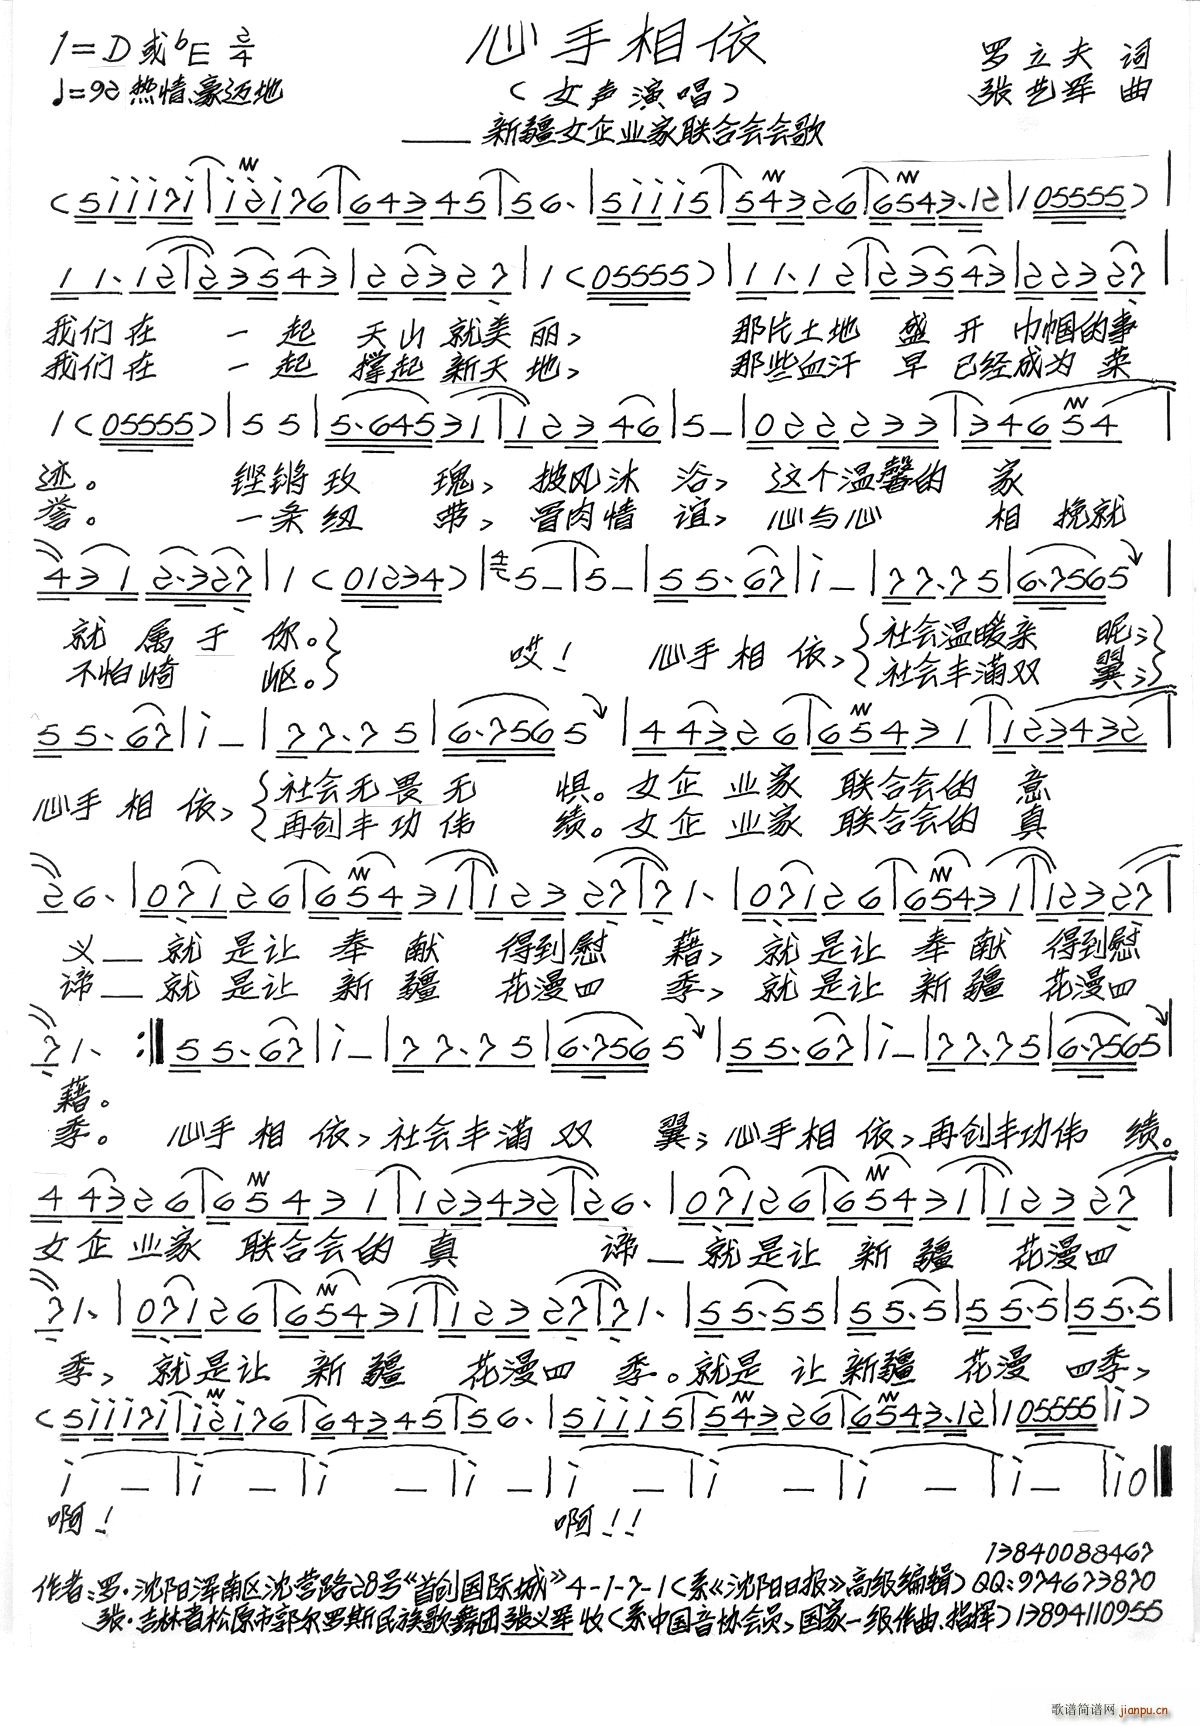 心手相依
1=D或bE 2/4
♩=92 热情、豪迈地
（女声演唱）
——新疆女企业家联合会会歌
罗立夫 词
张艺军 曲
(5iii7i|i2i76|64345|56.|5iii5|54326|6543.12|105555)|
11.12|23543|22327|1(05555)|11.12|23543|22327|
我们在 一起 天山就美丽、 那片土地 盛开 巾帼的事
我们在 一起 撑起新天地、 那些血汗 早已经成为 荣
1(05555)|55|5.64531|12346|5—|022233|34654|
迹。 铿锵玫 瑰、披风沐 浴、这个温馨的 家
誉。 一条纽 带、骨肉情 谊、心与心 相挽就
431 2.327|1(01234)|4/2 5—|5—|55.67|i—|77.75|6.7565|
就属于你。} 哎！ 心手相依、{社会温暖亲 昵；}
不怕崎 岖。} {社会丰满双 翼；}
55.67|i—|77.75|6.756 5|44326|65431|123432|
心手相依、{社会无畏无 惧。女企业家 联合会的 意
{再创丰功伟 绩。女企业家 联合会的 真
26.|07126|65431|12327|71.|07126|65431|12327|
义——就是让 奉献 得到慰 藉、就是让 奉献 得到慰
谛——就是让 新疆 花漫四 季、就是让 新疆 花漫四
71. :‖55.67|i—|77.75|6.756 5|55.67|i—|77.75|6.7565|
藉。
季。 心手相依、社会丰满双 翼；心手相依、再创丰功伟 绩。
44326|65431|123432|26.|07126|65431|12327|
女企业家 联合会的 真 谛——就是让 新疆 花漫四
71.|07126|65431|12327|71.|55.55|55.5|55.5|55.5|
季、就是让 新疆 花漫四 季。就是 让新疆 花漫 四季、
(5iii7i|i2i76|64345|56.|5iii5|54326|6543.12|105555|i)
i—|i—|i—|i—|i—|i—|i—|i—|i0‖
啊！ 啊！！
13840088467
作者:罗·沈阳浑南区沈营路28号《首创国际城》4-1-7-1(系《沈阳日报》高级编辑)QQ:974673870
张·吉林省松原市郭尔罗斯民族歌舞团张义军收(系中国音协会员、国家一级作曲、指挥)13894110955
歌谱简谱网
jianpu.cn